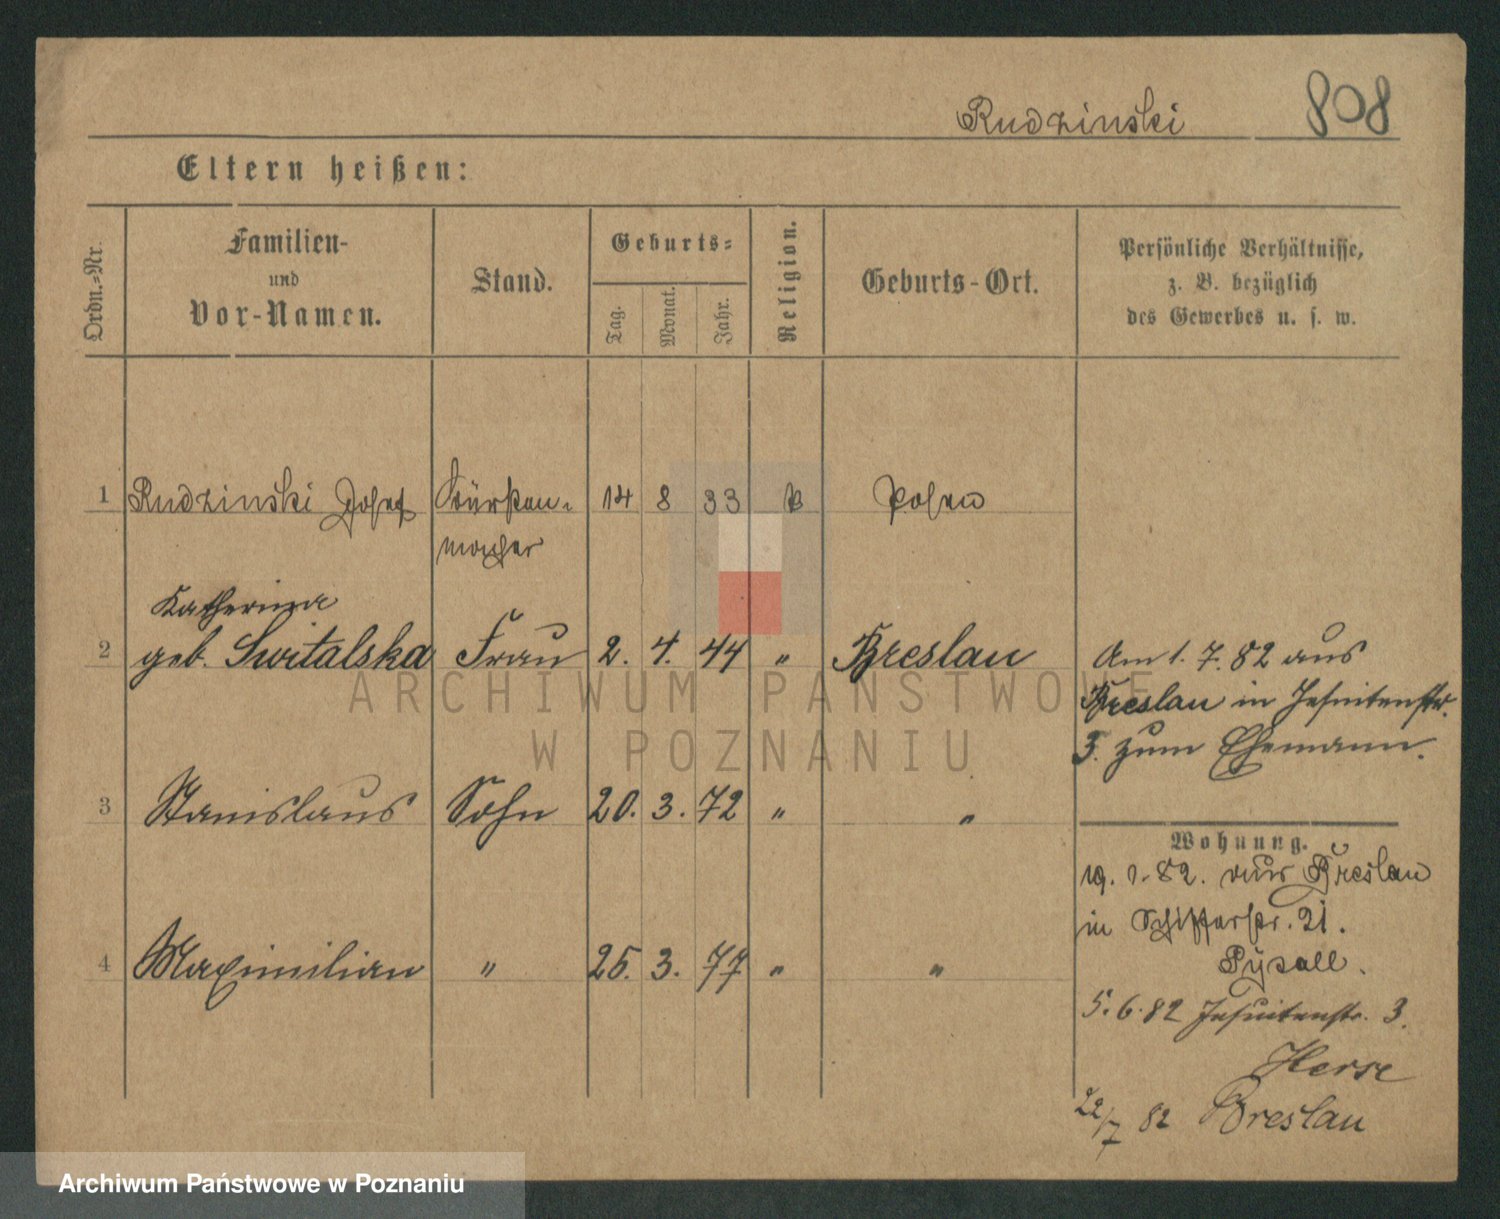 Rudzinski 808
Eltern heißen:
Ordn.-Nr.
Familien-
und
Vor-Namen.
Stand.
Geburts-
Tag.
Monat.
Jahr.
Religion.
Geburts-Ort.
Persönliche Verhältnisse,
z. B. bezüglich
des Gewerbes u. s. w.
1 Rudzinski Josef Bürsten- 14 8 33 Posen
macher
Katherina
2 geb. Switalska Frau 2. 4. 44 " Breslau
Am 1. 7. 82 aus
Breslau in Jesuitenstr.
3. zum Ehemann.
3 Stanislaus Sohn 20. 3. 72 " "
Wohnung.
19. 82. aus Breslau
in Schifferstr. 21.
4 Maximilian " 25. 3. 77 " "
5. 6. 82 Jesuitenstr. 3.
Herse
22/7 82 Breslau
ARCHIWUM PAŃSTWOWE
W POZNANIU
Archiwum Państwowe w Poznaniu